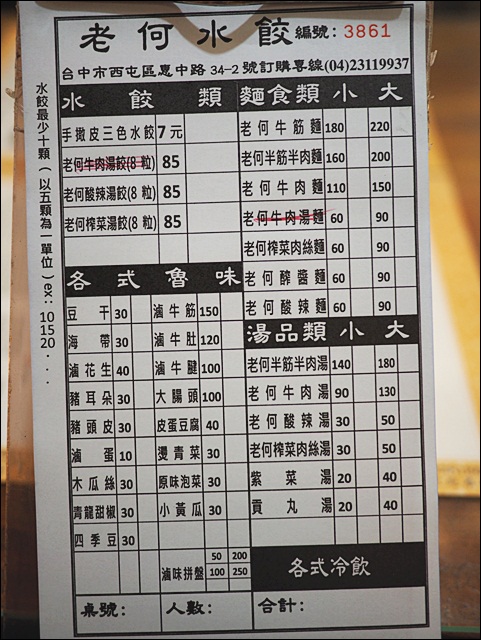 老何水餃 編號：3861
台中市西屯區惠中路34-2號訂購專線(04)23119937
水餃最少十顆（以五顆為一單位）ex：101520...
水餃類
手撖皮三色水餃 7元
老何牛肉湯餃(8粒) 85
老何酸辣湯餃(8粒) 85
老何榨菜湯餃(8粒) 85
麵食類 小 大
老何牛筋麵 180 220
老何半筋半肉麵 160 200
老何牛肉麵 110 150
老何牛肉湯麵 60 90
老何榨菜肉絲麵 60 90
老何醡醬麵 60 90
老何酸辣麵 60 90
各式魯味
豆干 30 滷牛筋 150
海帶 30 滷牛肚 120
滷花生 40 滷牛腱 100
豬耳朵 30 大腸頭 100
豬頭皮 30 皮蛋豆腐 40
滷蛋 10 燙青菜 30
木瓜絲 30 原味泡菜 30
青龍甜椒 30 小黃瓜 30
四季豆 30
滷味拼盤 50 200 100 250
湯品類 小 大
老何半筋半肉湯 140 180
老何牛肉湯 90 130
老何酸辣湯 30 50
老何榨菜肉絲湯 30 50
紫菜湯 20 40
貢丸湯 20 40
各式冷飲
桌號： 人數： 合計：